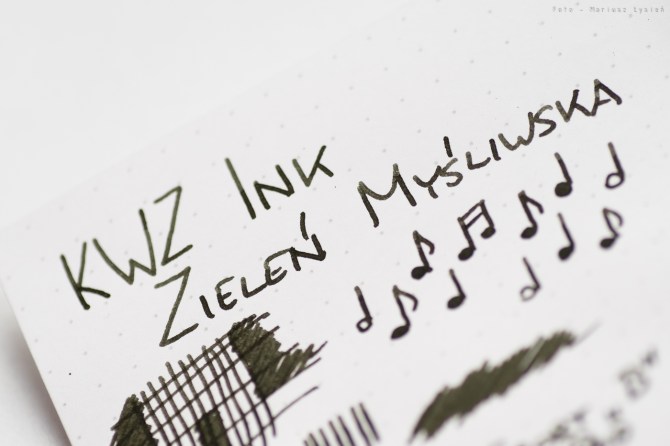 Foto - Mariusz Łysiak
KWZ Ink
Zieleń Myśliwska